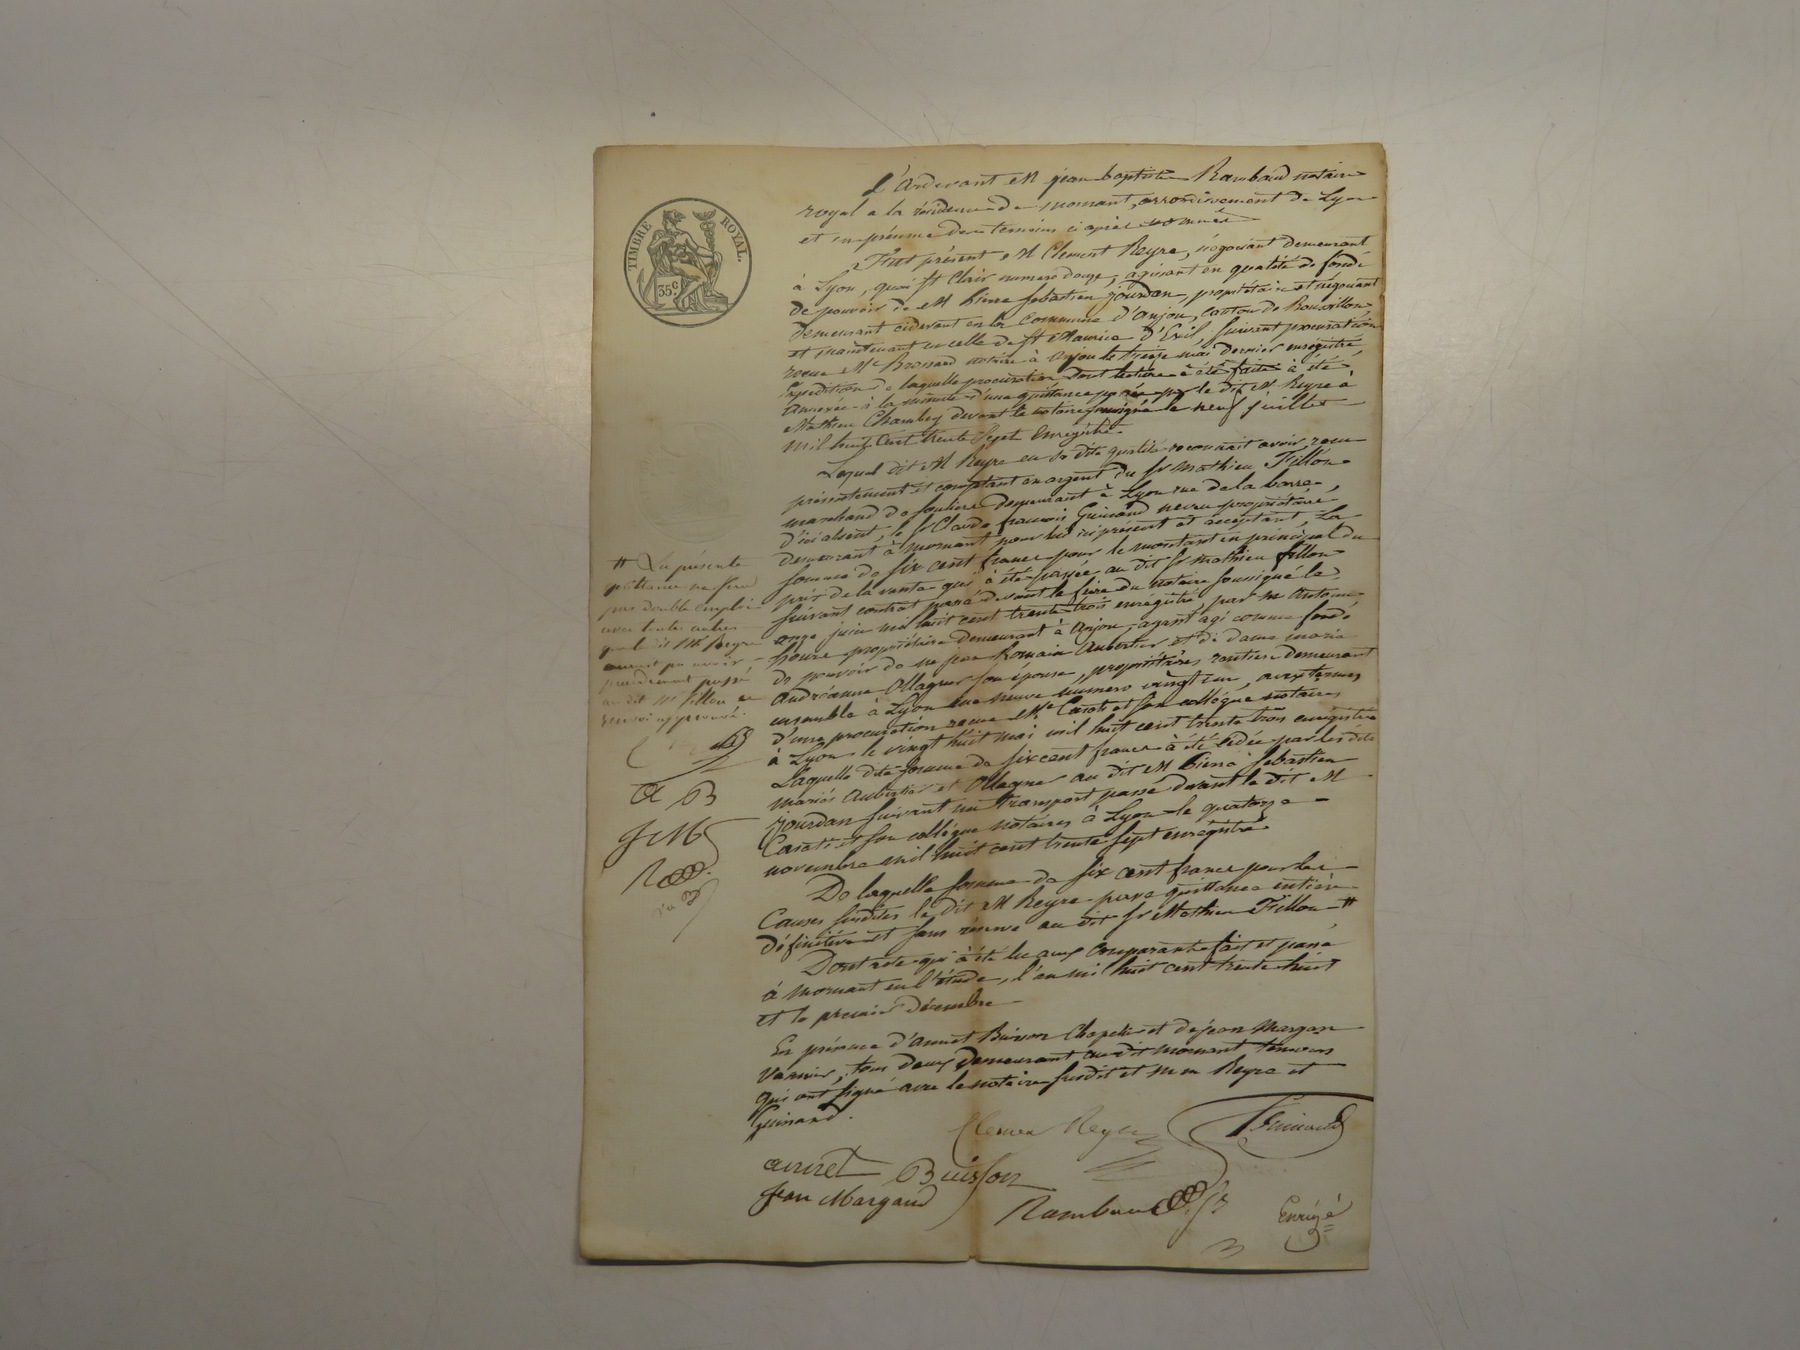 TIMBRE ROYAL.
35c.
Pardevant M jean baptiste Rambaud notaire
royal a la residence de mornant, arrondissement de Lyon
et en présence des temoins ci après nommés
Fut présent M Clement Reyre, négociant demeurant
à Lyon, quai St Clair numero douze, agissant en qualité de fondé
de pouvoir de M Pierre Sebastien Jourdan, propriétaire et négociant
demeurant cidevant en la commune d'Anjou, canton de Roussillon
et maintenant en celle de St Maurice d'Exil, suivant procuration
recue Me Brossard notaire à Anjou le treize mai dernier enregistré,
Expédition de laquelle procuration dont lecture a été faite à été
annexée à la minute d'une quittance passée par le dit M Reyre à
Mathieu Chambey devant le notaire soussigné le neuf juillet
mil huit cent trente sept enregistré.
Lequel dit M Reyre en sa dite qualité reconnait avoir recu
présentement et comptant en argent du sr Mathieu Fillon
marchand de souliers demeurant à Lyon rue de la barre,
d'ici absent, le sr Claude francois Guinand neveu propriétaire
demeurant à mornant pour lui ici présent et acceptant, La
somme de six cent francs pour le montant en principal du
prix de la vente qui à été passée au dit sr mathieu fillon
suivant contrat passé devant le frère du notaire soussigné le
onze juin mil huit cent trente trois enregistré par mr Antoine
propriétaire demeurant à Anjou, ayant agi comme fondé
de pouvoir de mr jean Romain Aubertier et de dame marie
Andréanne Ollagner son épouse, propriétaires rentiers demeurant
ensemble à Lyon rue neuve numero vingt un, aux termes
d'une procuration recue Me Casati et son collégue notaires
à Lyon le vingt huit mai mil huit cent trente trois enregistré
Laquelle dite somme de six cent francs à été cédée par les dits
mariés Aubertier et Ollagner au dit M Pierre Sebastien
Jourdan suivant un transport passé devant le dit M
Casati et son collégue notaires à Lyon le quatorze
novembre mil huit cent trente sept enregistré.
De laquelle somme de six cent francs pour les
Causes susdites le dit M Reyre passe quittance entière
définitive et sans réserve au dit sr Mathieu Fillon #
Dont acte qui à été lu aux comparants fait et passé
à mornant en l'étude, l'an mil huit cent trente huit
et le premier décembre
En présence d'annet Buisson Chapelier et de jean Margaux
Vannier, tous deux demeurant au dit mornant témoins
qui ont signé avec le notaire susdit et M m Reyre et
Guinand.
# La présente
quittance ne fera
pas double emploi
avec toutes autres
que le dit M Reyre
aurait pu avoir
précédemment passé
au dit sr fillon
renvoi approuvé.
a B
Clemen Reyre
Guinand
annet Buisson
jean Margaud
Rambaud
Enrigé